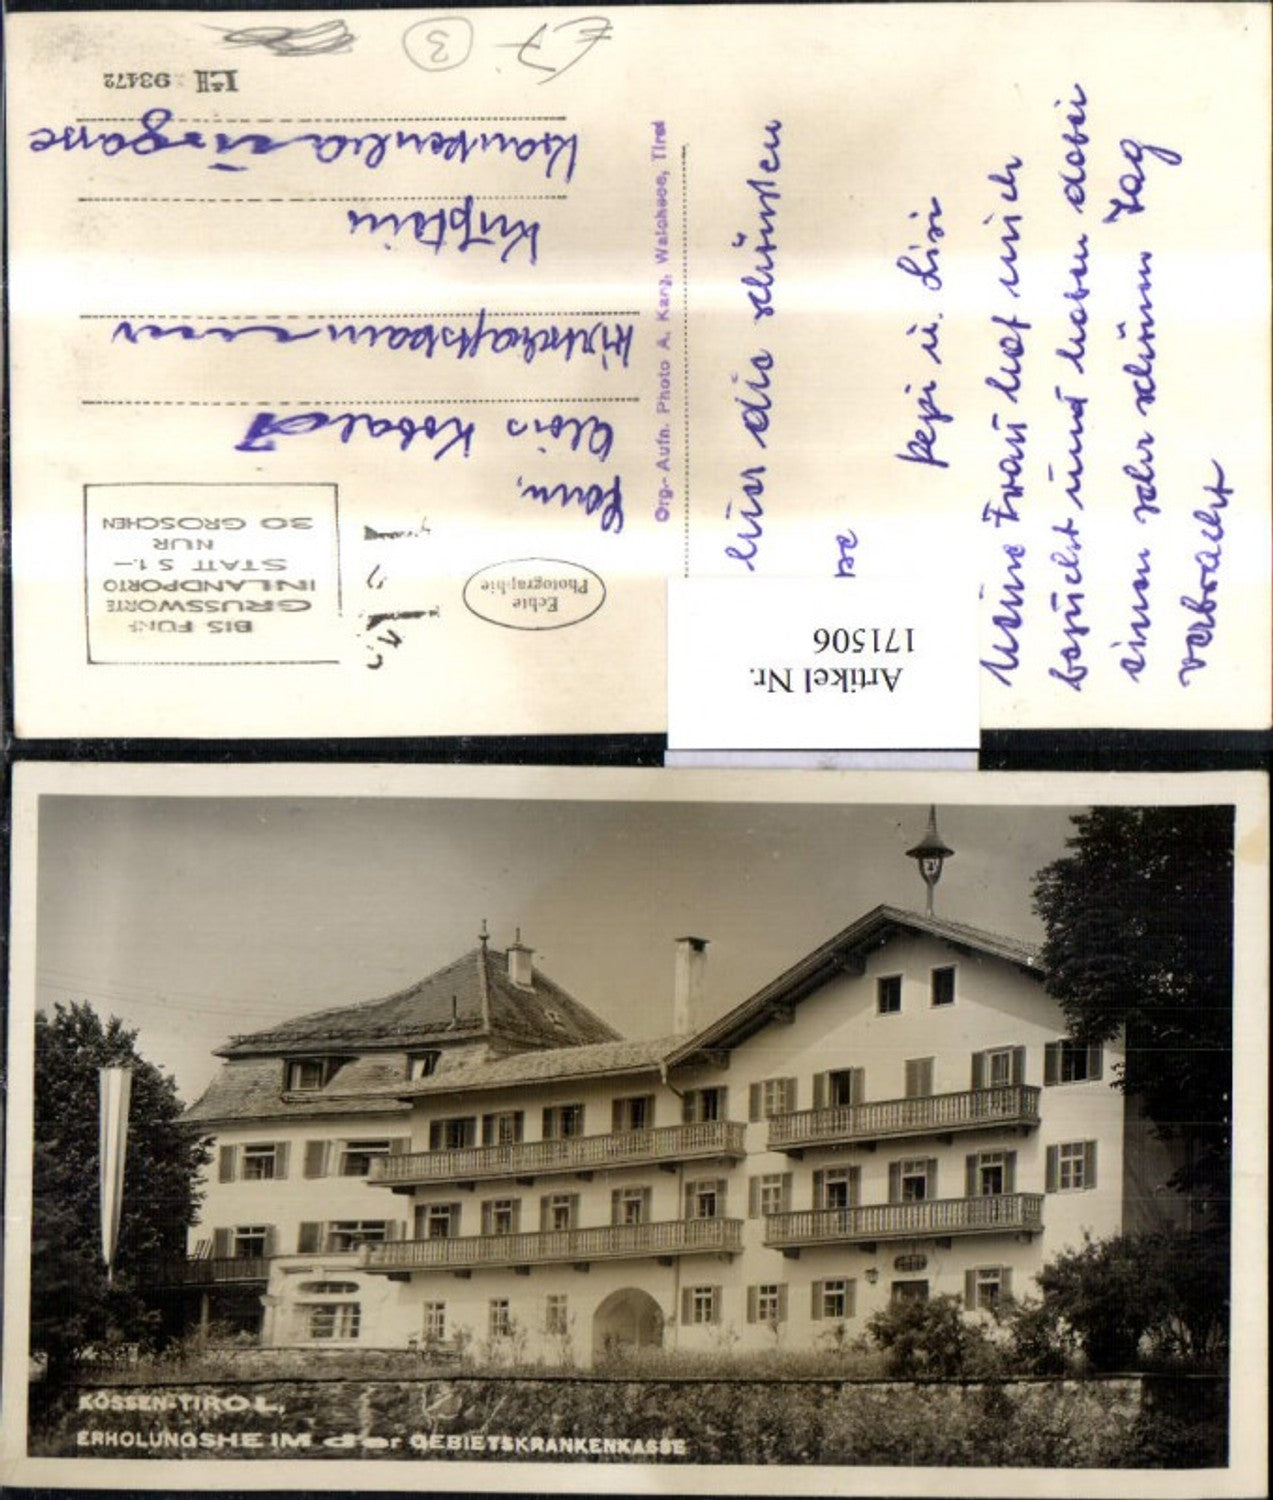 BIS FÜNF
GRUSSWORTE
INLANDPORTO
STATT S 1.—
NUR
30 GROSCHEN
Echte
Photographie
Alois
Wirtschaftskammer
Kufstein
L&H 93472
3
E7
Org.- Aufn. Photo A. Karg, Walchsee, Tirol
hier die schönsten
Pepi u. Lisi
Meine Frau hat mich
besucht und haben dabei
einen sehr schönen Tag
verbracht
Artikel Nr.
171506
KÖSSEN-TIROL,
ERHOLUNGSHEIM der GEBIETSKRANKENKASSE